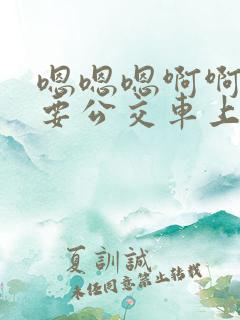 嗯嗯嗯啊啊
要公交車上
夏訓誠
未经同意禁止转载